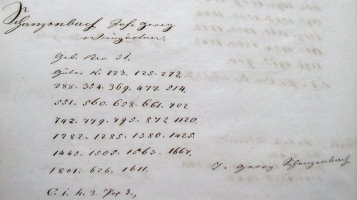 Schanzenbach Joh. Georg
Geb. Nro. 51.
Güter N. 123. 125. 272
288. 354. 369. 477. 514.
551. 560. 658. 661. 702
742. 779. 795. 872 1120.
1282. 1285. 1380. 1425.
1445. 1505. 1563. 1664.
1801. 626. 1611.
J. Georg Schanzenbach